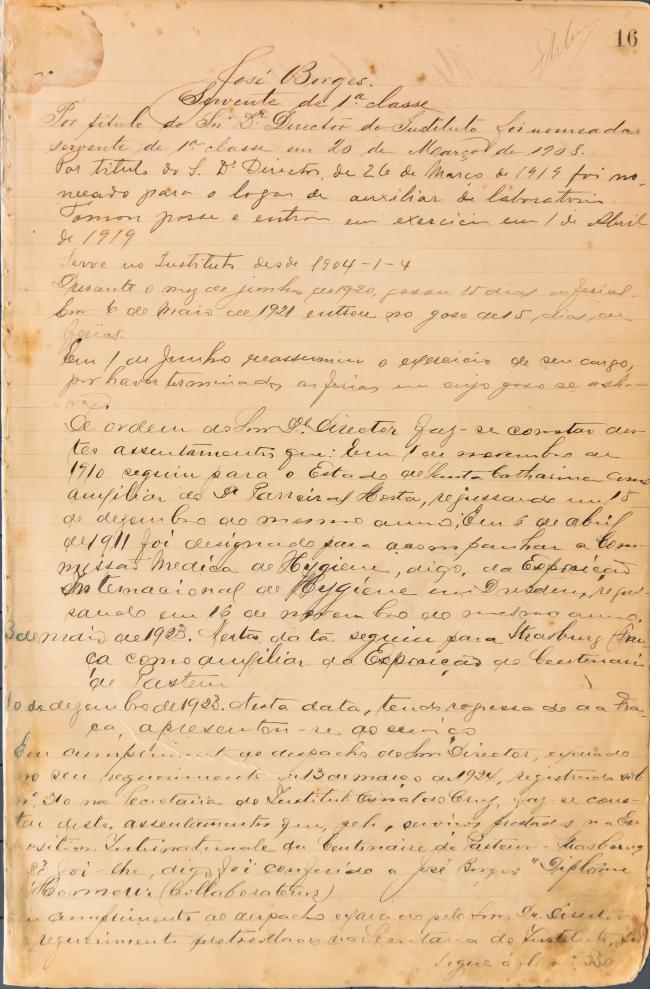 16
José Borges.
Servente de 1ª classe
Por titulo do Snr Dr Director do Instituto foi nomeado
servente de 1ª classe em 20 de Março de 1908.
Por titulo do S. Dr Director, de 26 de Março de 1919 foi no-
meado para o logar de auxiliar de laboratorio.
Tomou posse e entrou em exercicio em 1 de Abril
de 1919
Serve no Instituto desde 1904-1-4
Durante o mez de junho de 1920, gosou 15 dias de ferias.
Em 6 de Maio de 1921 entrou no goso de 15 dias de
ferias.
Em 1 de Junho reassumiu o exercicio de seu cargo,
por haver terminado as ferias em cujo goso se acha-
va.
De ordem do Snr Dr Director faz-se constar des-
tes assentamentos que: Em 1 de novembro de
1910 seguiu para o Estado de Santa Catharina como
auxiliar do Dr Parreiras Horta, regressando em 15
de dezembro do mesmo anno; Em 5 de abril
de 1911 foi designado para acompanhar a Com-
missão Medica de Hygiene, digo, da Exposição
Internacional de Hygiene em Dresden, regres-
sando em 16 de novembro do mesmo anno.
3 de maio de 1923. Nesta data seguiu para Strasburg (Fran-
ça como auxiliar da Exposição do Centenario
de Pasteur )
10 de dezembro de 1923. Nesta data, tendo regressado da Fran-
ça, apresentou-se ao serviço
Em cumprimento ao despacho do Snr Director, exarado
no seu requerimento de 13 de março de 1924, registrado sob
nº 310 na Secretaria do Instituto Oswaldo Cruz, faz-se cons-
tar deste, assentamentos que, pelos serviços prestados na Ex-
position Internationale du Centenaire de Pasteur - Strasbourg
foi-lhe, digo, foi conferido a José Borges "Diplôme
d'Honneur (Collaborateurs)
cumprimento ao despacho exarado pelo Snr Dr Director
requerimento protocollado na Secretaria do Instituto,
Segue á fl. nº 330